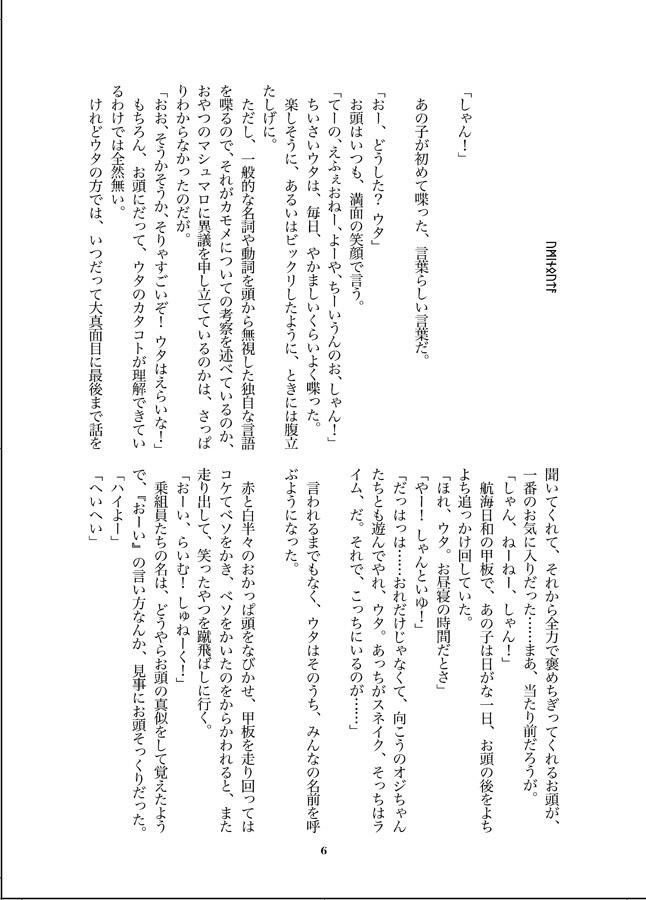 「しゃん！」
あの子が初めて喋った、言葉らしい言葉だ。
「おー、どうした？ ウタ」
お頭はいつも、満面の笑顔で言う。
「てーの、えふぇおねー、よーや、ちーいうんのお、しゃん！」
ちいさいウタは、毎日、やかましいくらいよく喋った。
楽しそうに、あるいはビックリしたように、ときには腹立
たしげに。
ただし、一般的な名詞や動詞を頭から無視した独自な言語
を喋るので、それがカモメについての考察を述べているのか、
おやつのマシュマロに異議を申し立てているのかは、さっぱ
りわからなかったのだが。
「おお、そうかそうか、そりゃすごいぞ！ ウタはえらいな！」
もちろん、お頭にだって、ウタのカタコトが理解できてい
るわけでは全然無い。
けれどウタの方では、いつだって大真面目に最後まで話を
聞いてくれて、それから全力で褒めちぎってくれるお頭が、
一番のお気に入りだった……まあ、当たり前だろうが。
「しゃん、ねーねー、しゃん！」
航海日和の甲板で、あの子は日がな一日、お頭の後をよち
よち追っかけ回していた。
「ほれ、ウタ。お昼寝の時間だとさ」
「やー！ しゃんといゆー！」
「だっはっは……おれだけじゃなくて、向こうのオジちゃん
たちとも遊んでやれ、ウタ。あっちがスネイク、そっちはラ
イム、だ。それで、こっちにいるのが……」
言われるまでもなく、ウタはそのうち、みんなの名前を呼
ぶようになった。
赤と白半々のおかっぱ頭をなびかせ、甲板を走り回っては
コケてベソをかき、ベソをかいたのをからかわれると、また
走り出して、笑ったやつを蹴飛ばしに行く。
「おーい、らいむ！ しゅねーく！」
乗組員たちの名は、どうやらお頭の真似をして覚えたよう
で、『おーい』の言い方なんか、見事にお頭そっくりだった。
「ハイよー」
「へいへい」
6